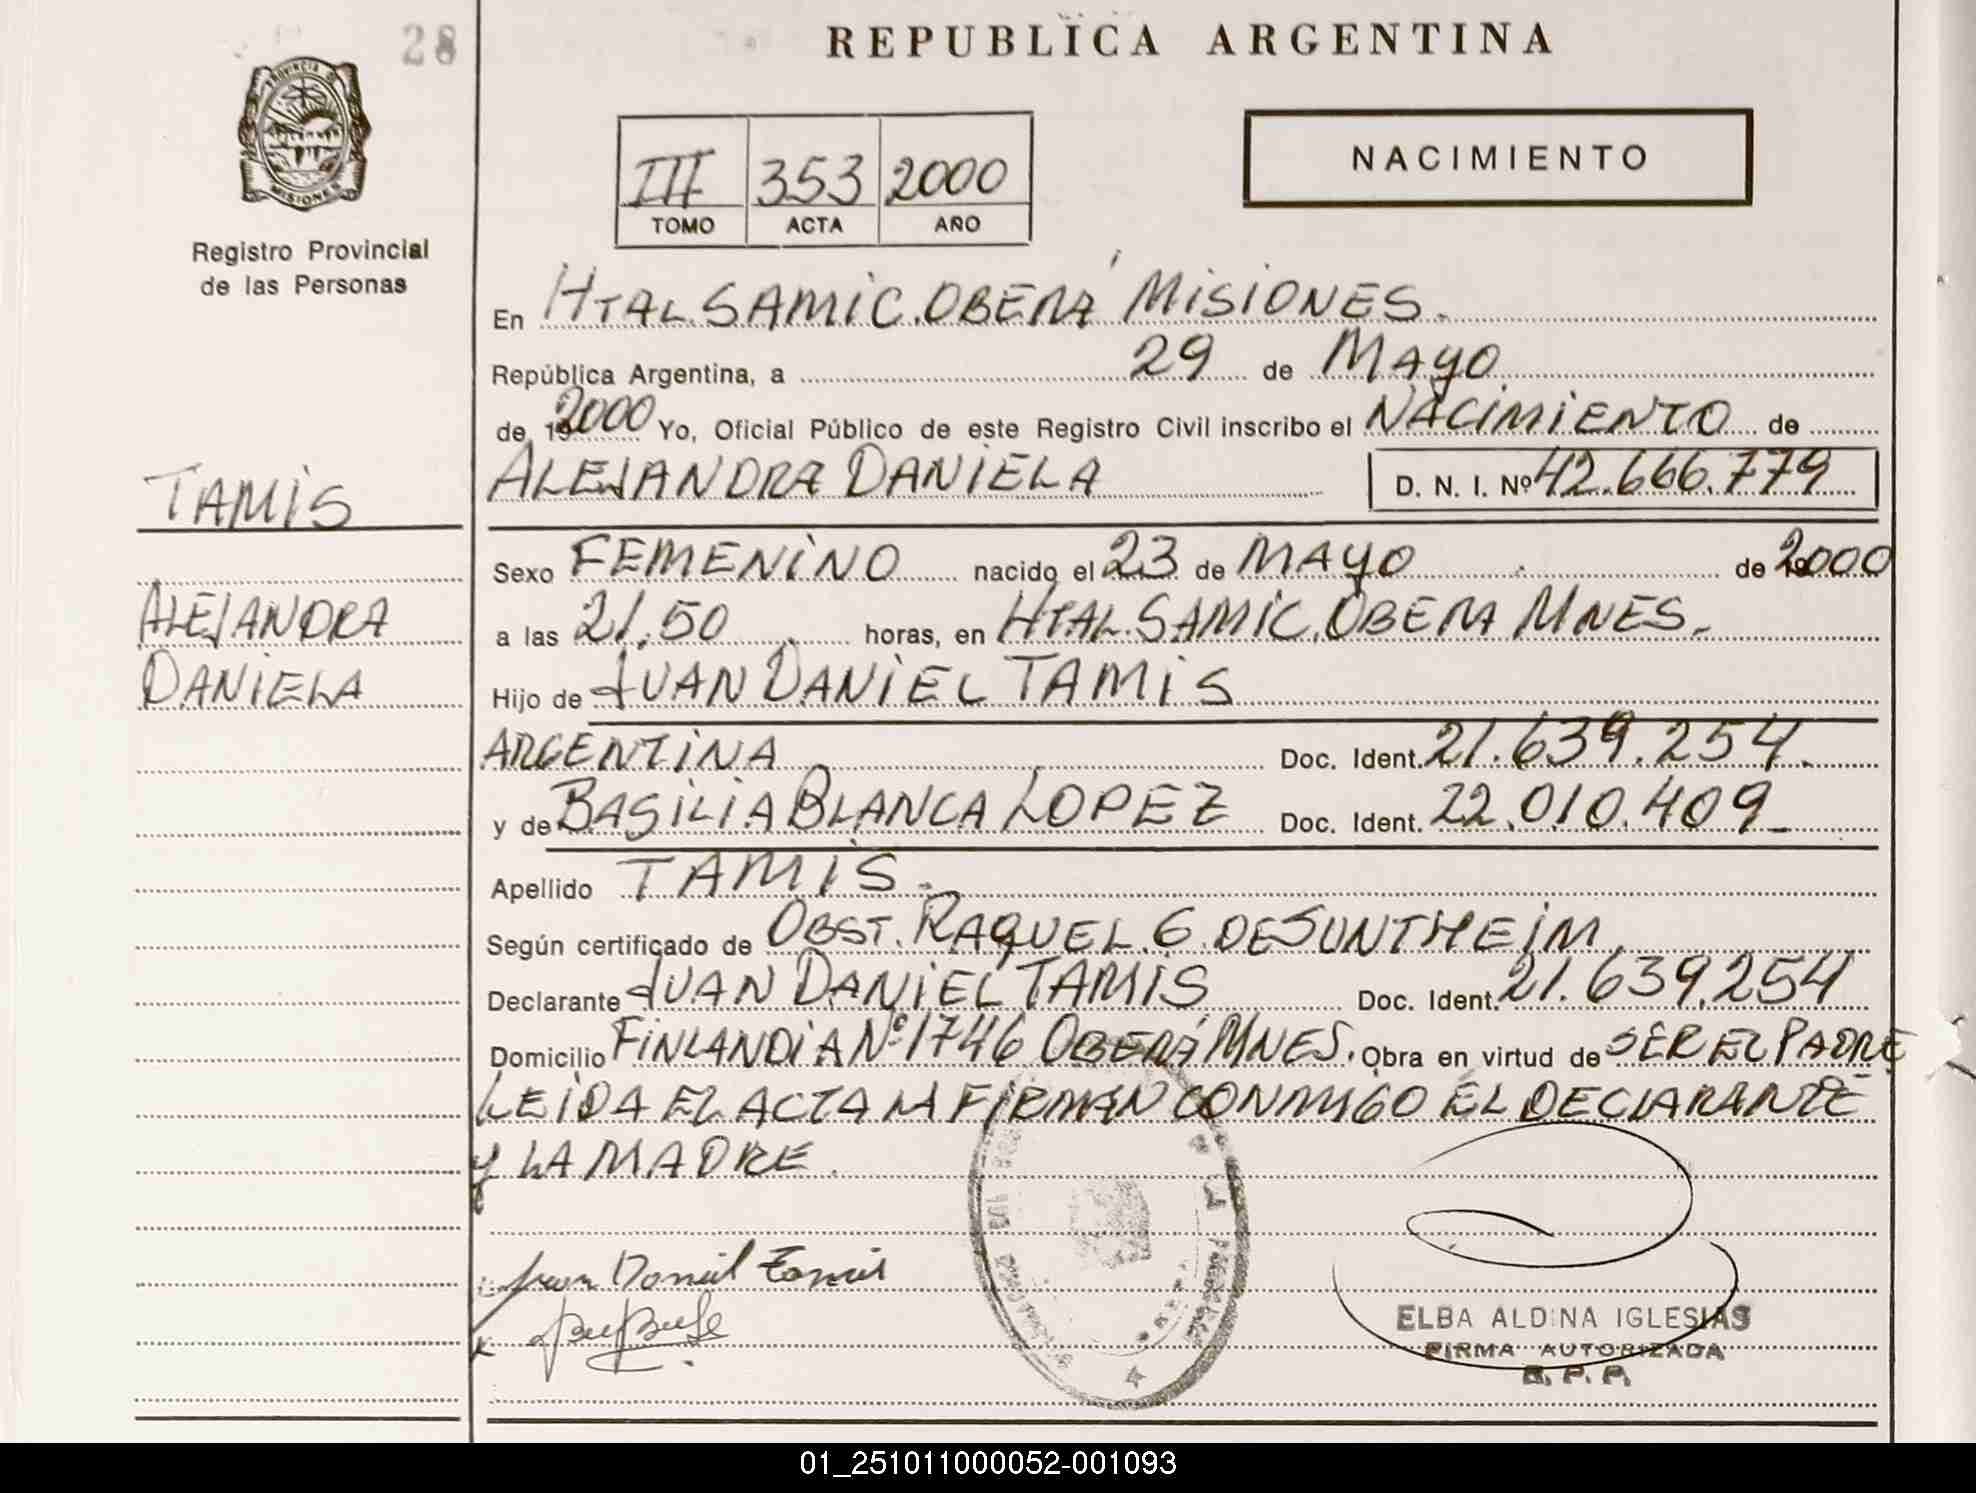 28
REPUBLICA ARGENTINA
PROVINCIA DE
MISIONES
Registro Provincial
de las Personas
III 353 2000
TOMO ACTA AÑO
NACIMIENTO
En HTAL SAMIC. OBERÁ MISIONES.
República Argentina, a 29 de MAYO
de 192000 Yo, Oficial Público de este Registro Civil inscribo el NACIMIENTO de
ALEJANDRA DANIELA D. N. I. Nº 42.666.779
TAMIS
ALEJANDRA
DANIELA
Sexo FEMENINO nacido el 23 de MAYO de 2000
a las 21.50 horas, en HTAL. SAMIC. OBERA MNES.
Hijo de JUAN DANIEL TAMIS
ARGENTINA Doc. Ident. 21.639.254.
y de BASILIA BLANCA LOPEZ Doc. Ident. 22.010.409_
Apellido TAMIS.
Según certificado de OBST. RAQUEL. G. DE SUNTHEIM.
Declarante JUAN DANIEL TAMIS Doc. Ident. 21.639.254
Domicilio FINLANDIA Nº 1746 OBERÁ MNES. Obra en virtud de SER EL PADRE
LEIDA EL ACTA LA FIRMAN CONMIGO EL DECLARANTE
Y LA MADRE.
Juan Daniel Tamis
ELBA ALDINA IGLESIAS
FIRMA AUTORIZADA
R. P. P.
01_251011000052-001093